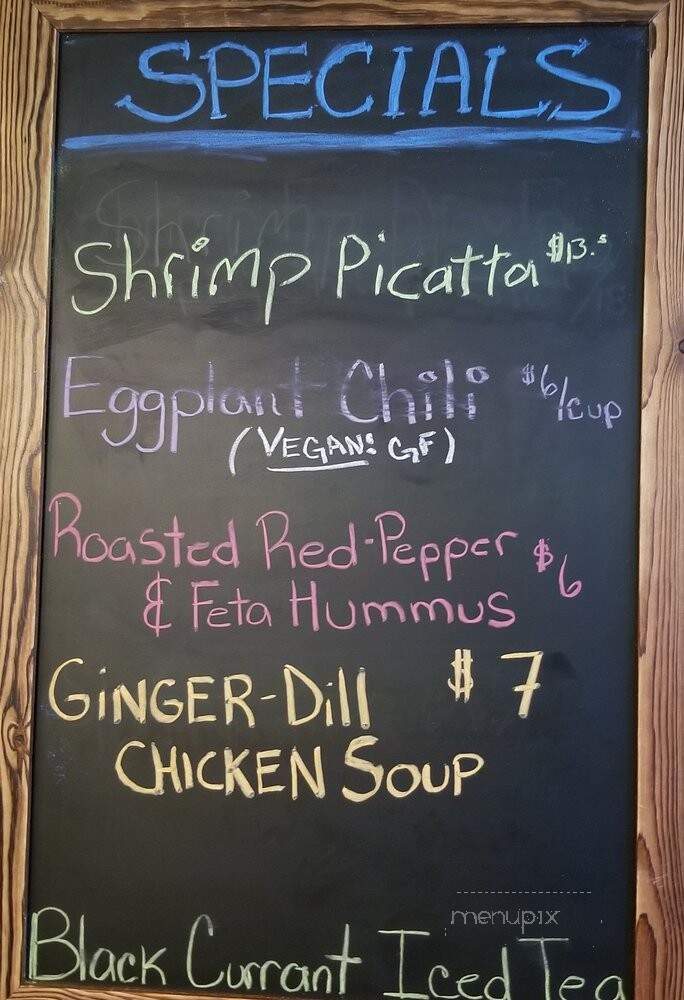 SPECIALS
Shrimp Picatta $13.5
Eggplant Chili $6/cup
(VEGAN: GF)
Roasted Red-Pepper $6
& Feta Hummus
GiNGER-Dill $7
CHICKEN SOUP
menupix
Black Currant Iced Tea